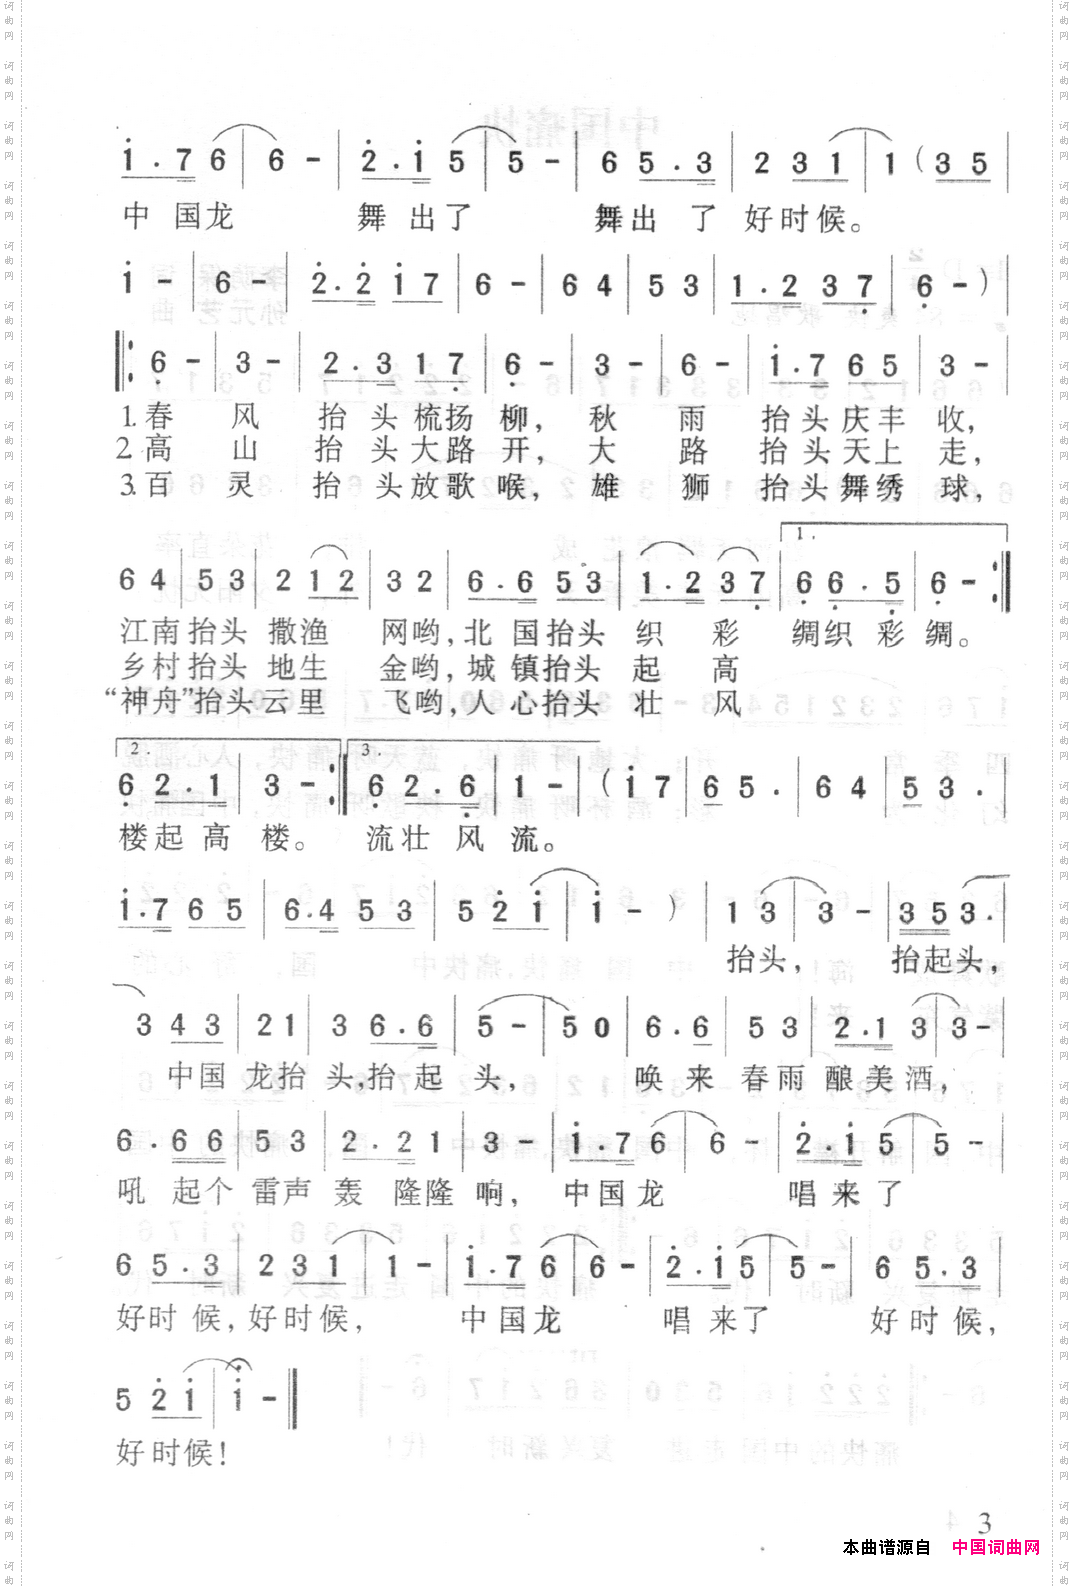 i·7 6 | 6 - | 2·i 5 | 5 - | 6 5·3 | 2 3 1 | 1 ( 3 5 |
中 国龙 舞 出了 舞出 了 好时候。
i - | 6 - | 2·2 i 7 | 6 - | 6 4 | 5 3 | 1·2 3 7 | 6 - )
6 - | 3 - | 2·3 1 7 | 6 - | 3 - | 6 - | i·7 6 5 | 3 - |
1.春 风 抬 头梳扬 柳, 秋 雨 抬头庆丰 收,
2.高 山 抬 头大路 开, 大 路 抬头天上 走,
3.百 灵 抬 头放歌 喉, 雄 狮 抬头舞绣 球,
1.
6 4 | 5 3 | 2 1 2 | 3 2 | 6·6 5 3 | 1·2 3 7 | 6 6·5 | 6 - :|
江南抬头 撒渔 网哟,北 国抬头 织 彩 绸织 彩 绸。
乡村抬头 地生 金哟,城 镇抬头 起 高
“神舟”抬头云里 飞哟,人 心抬头 壮 风
2. 3.
6 2·1 | 3 - :| 6 2·6 | 1 - | ( i 7 | 6 5· | 6 4 | 5 3· |
楼起 高 楼。 流壮 风 流。
i·7 6 5 | 6·4 5 3 | 5 2 i | i - ) | 1 3 | 3 - | 3 5 3 3·
抬头, 抬起头,
3 4 3 | 2 1 | 3 6·6 | 5 - | 5 0 | 6·6 | 5 3 | 2·1 3 | 3 -
中国 龙抬 头,抬 起 头, 唤 来 春雨 酿美 酒,
6·6 6 | 5 3 | 2·2 1 | 3 - | i·7 6 | 6 - | 2·i 5 | 5 -
吼 起个 雷声 轰 隆隆 响, 中国龙 唱 来了
6 5·3 | 2 3 1 | 1 - | i·7 6 | 6 - | 2·i 5 | 5 - | 6 5·3 |
好时 候,好时候, 中国龙 唱 来了 好 时 候,
5 2 i | i - ||
好时候!
3
本曲谱源自 中国词曲网